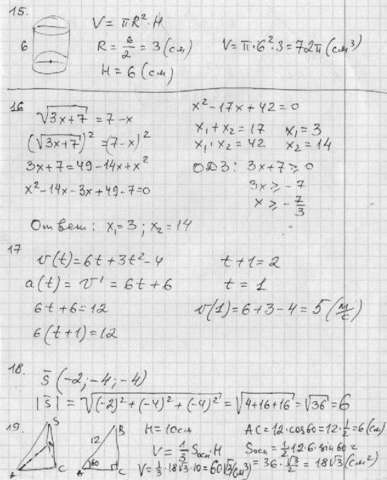 15.
6
V = πR²·H
R = 6/2 = 3 (см)
H = 6 (см)
V = π·6²·3 = 72π (см³)
16
√(3x+7) = 7-x
(√(3x+7))² = (7-x)²
3x+7 = 49-14x+x²
x²-14x-3x+49-7=0
x²-17x+42=0
x₁+x₂=17 x₁=3
x₁·x₂=42 x₂=14
ОДЗ: 3x+7 ≥ 0
3x ≥ -7
x ≥ -7/3
Ответ: x₁=3; x₂=14
17
v(t) = 6t+3t²-4
a(t) = v' = 6t+6
6t+6=12
6(t+1)=12
t+1=2
t=1
v(1)=6+3-4=5 (м/с)
18.
s̄ (-2; -4; -4)
|s̄| = √((-2)²+(-4)²+(-4)²) = √(4+16+16) = √36 = 6
19.
S
A
C
B
12
60
A
C
H=10см
V = 1/3 Sосн H
V = 1/3·18√3·10 = 60√3 (см³)
AC=12·cos60=12·1/2=6(см)
Sосн=1/2·12·6·sin60=
=36·√3/2=18√3(см²)